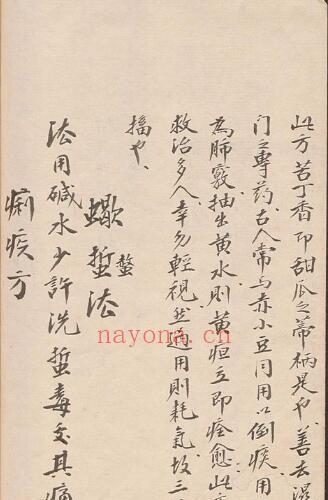 此方苦丁香即甜瓜之蒂柄是也善去湿
门之专药古人常与赤小豆同用以倒痰用
為肺竅抽出黄水则黄疸立即痊愈此方
救治多人幸勿輕視然通用则耗氣故三
搐也
蠍蜇法
螫
法用碱水少許洗蜇毒交其痛
痢疾方
nayona.cn